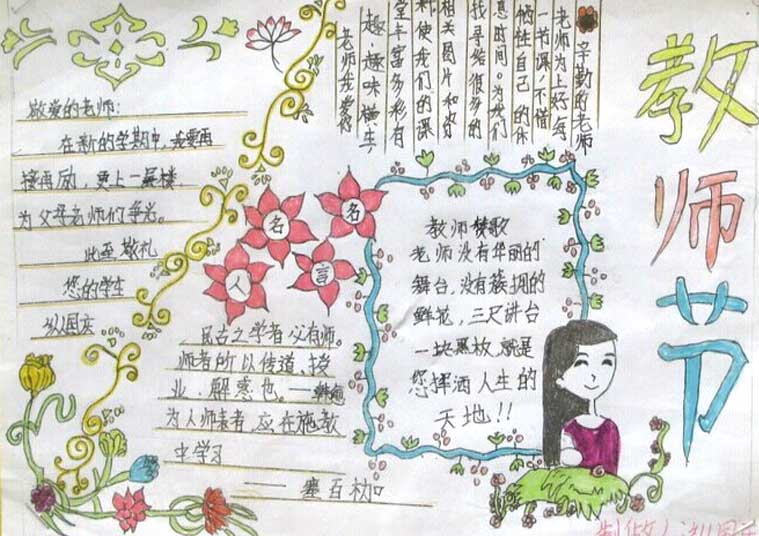 教师节
辛勤的老师
老师为上好每
一节课,不惜
牺牲自己的休
息时间。为我们
找寻给很多的
相关图片和好
料使我们的课
堂丰富多彩有
趣,趣味横生,
老师我爱你
敬爱的老师:
在新的学期中,我要再
接再励,更上一层楼
为父母老师们争光。
此至敬礼
您的学生
国庆
名人名言
民古之学者必有师。
师者所以传道、授
业、解惑也。——韩愈
为人师表者,应在施教
中学习
——塞百加
教师赞歌
老师没有华丽的
舞台,没有簇拥的
鲜花,三尺讲台
一块黑板,就是
您挥洒人生的
天地!!
制做人